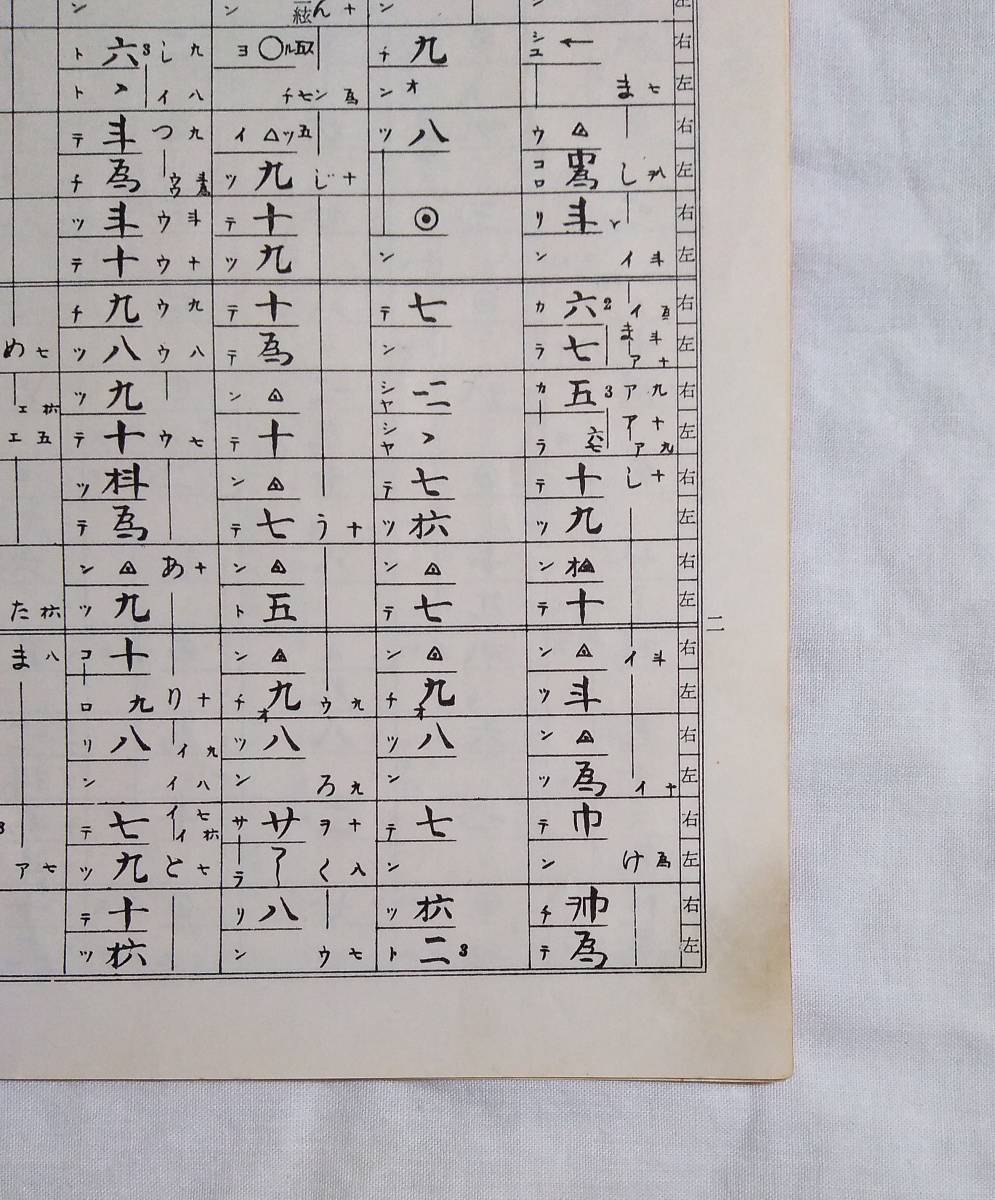 左右左右左右左右左右左右左右左右左右左右左右左
二
ま七 し イ斗 イ為 ま斗 ア十 ア九 ア十 ア九 し十 イ斗 イ十 け為
← △ 斗 六2 七 五3 十 九 十 △ 斗 △ 為 巾 為
シユ ウ コロ リ ン カ ラ カーラ テ ツ ン テ ン ツ ン ツ テ ン チ テ
九 オ 八 ⦿ 七 一二 ヽ 七 六 △ 七 △ 九オ 八 七 六 二3
ン チ ン ツ ン テ ン シヤ シヤ テ ツ ン テ ン チ ツ ン テ ン ツ ト
絃 ん十 為 じ十 う十 ウ九 ろ九 ヲ十 く八 ウ七
○ル五ス チセン △ツ五 九 十 九 十 為 △ 十 △ 七 △ 五 △ 九オ 八 サ 了 八
ン ヨ イ ツ テ ツ テ テ ン テ ン テ ン ト ン チ ツ ン サーラ リ ン
し九 イ八 つ九 ウ ウ斗 ウ十 ウ九 ウ八 ウ七 あ十 り十 イ九 イ八 イ七 イ と七
六3 ヽ 斗 為 斗 十 九 八 九 十 斗 為 △ 九 十 九 八 七 九 十
ン ト ト テ チ ツ テ チ ツ ツ テ ツ テ ン ツ コーロ リ ン テ ツ テ ツ
め七 エ エ五 た ま八 3 ア七